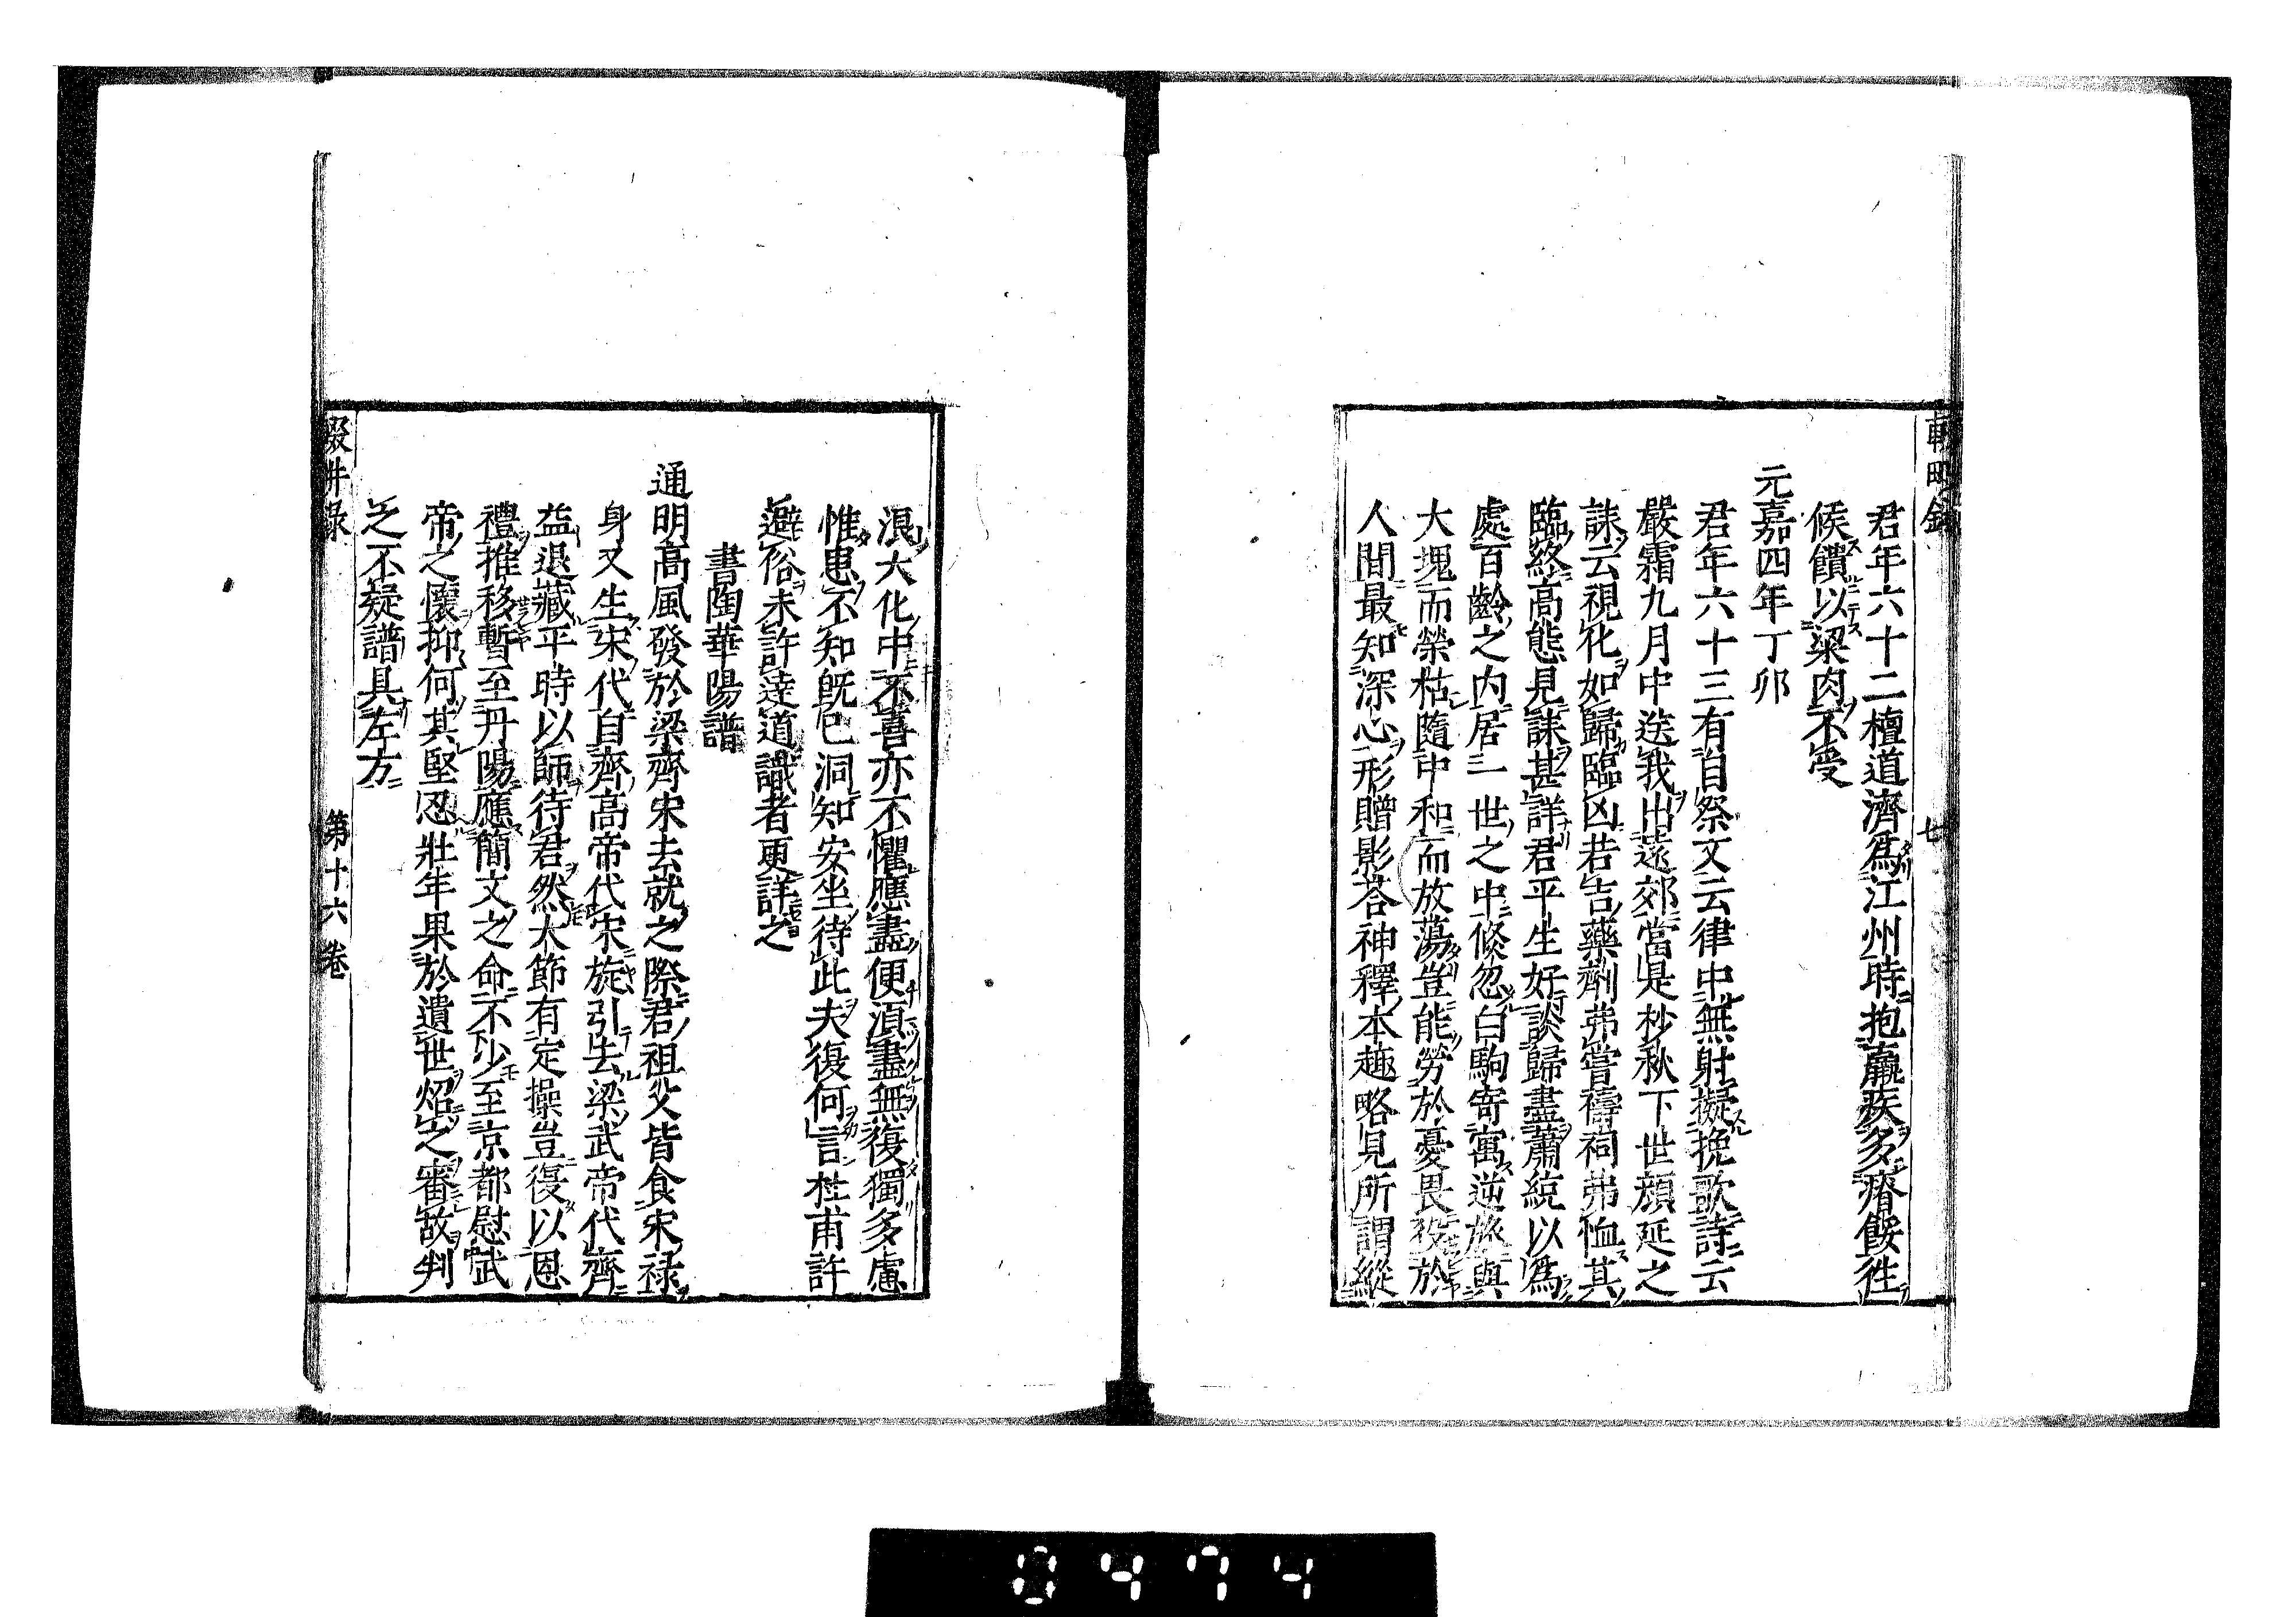 君年六十二檀道濟爲江州時抱羸疾多瘠餒徃
候饋以粱肉不受
元嘉四年丁卯
君年六十三有自祭文云律中無射擬挽歌詩云
嚴霜九月中送我出遠郊當是杪秋下世顔延之
誄云視化如歸臨凶若吉藥劑弗嘗禱祠弗恤其
臨終高態見誄甚詳君平生好談歸盡蕭統以爲
處百齡之内居一世之中倏忽白駒寄寓逆旅與
大塊而榮枯隨中和而放蕩豈能勞於憂畏役於
人間最知深心形贈影荅神釋本趣略見所謂縱
七
浪大化中不喜亦不懼應盡便湏盡無復獨多慮
惟患不知旣已洞知安坐待此夫復何言杜甫許
避俗未許達道識者更詳之
書陶華陽譜
通明高風發於梁齊宋去就之際君祖父皆食宋禄
身又生宋代自齊高帝代宋旋引去梁武帝代齊
益退藏平時以師待君然大節有定操豈復以恩
禮推移暫至丹陽應簡文之命不少至京都慰武
帝之懷抑何其堅忍壯年果於遺世炤之審故判
之不疑譜具左方
輟畊録
第十六卷